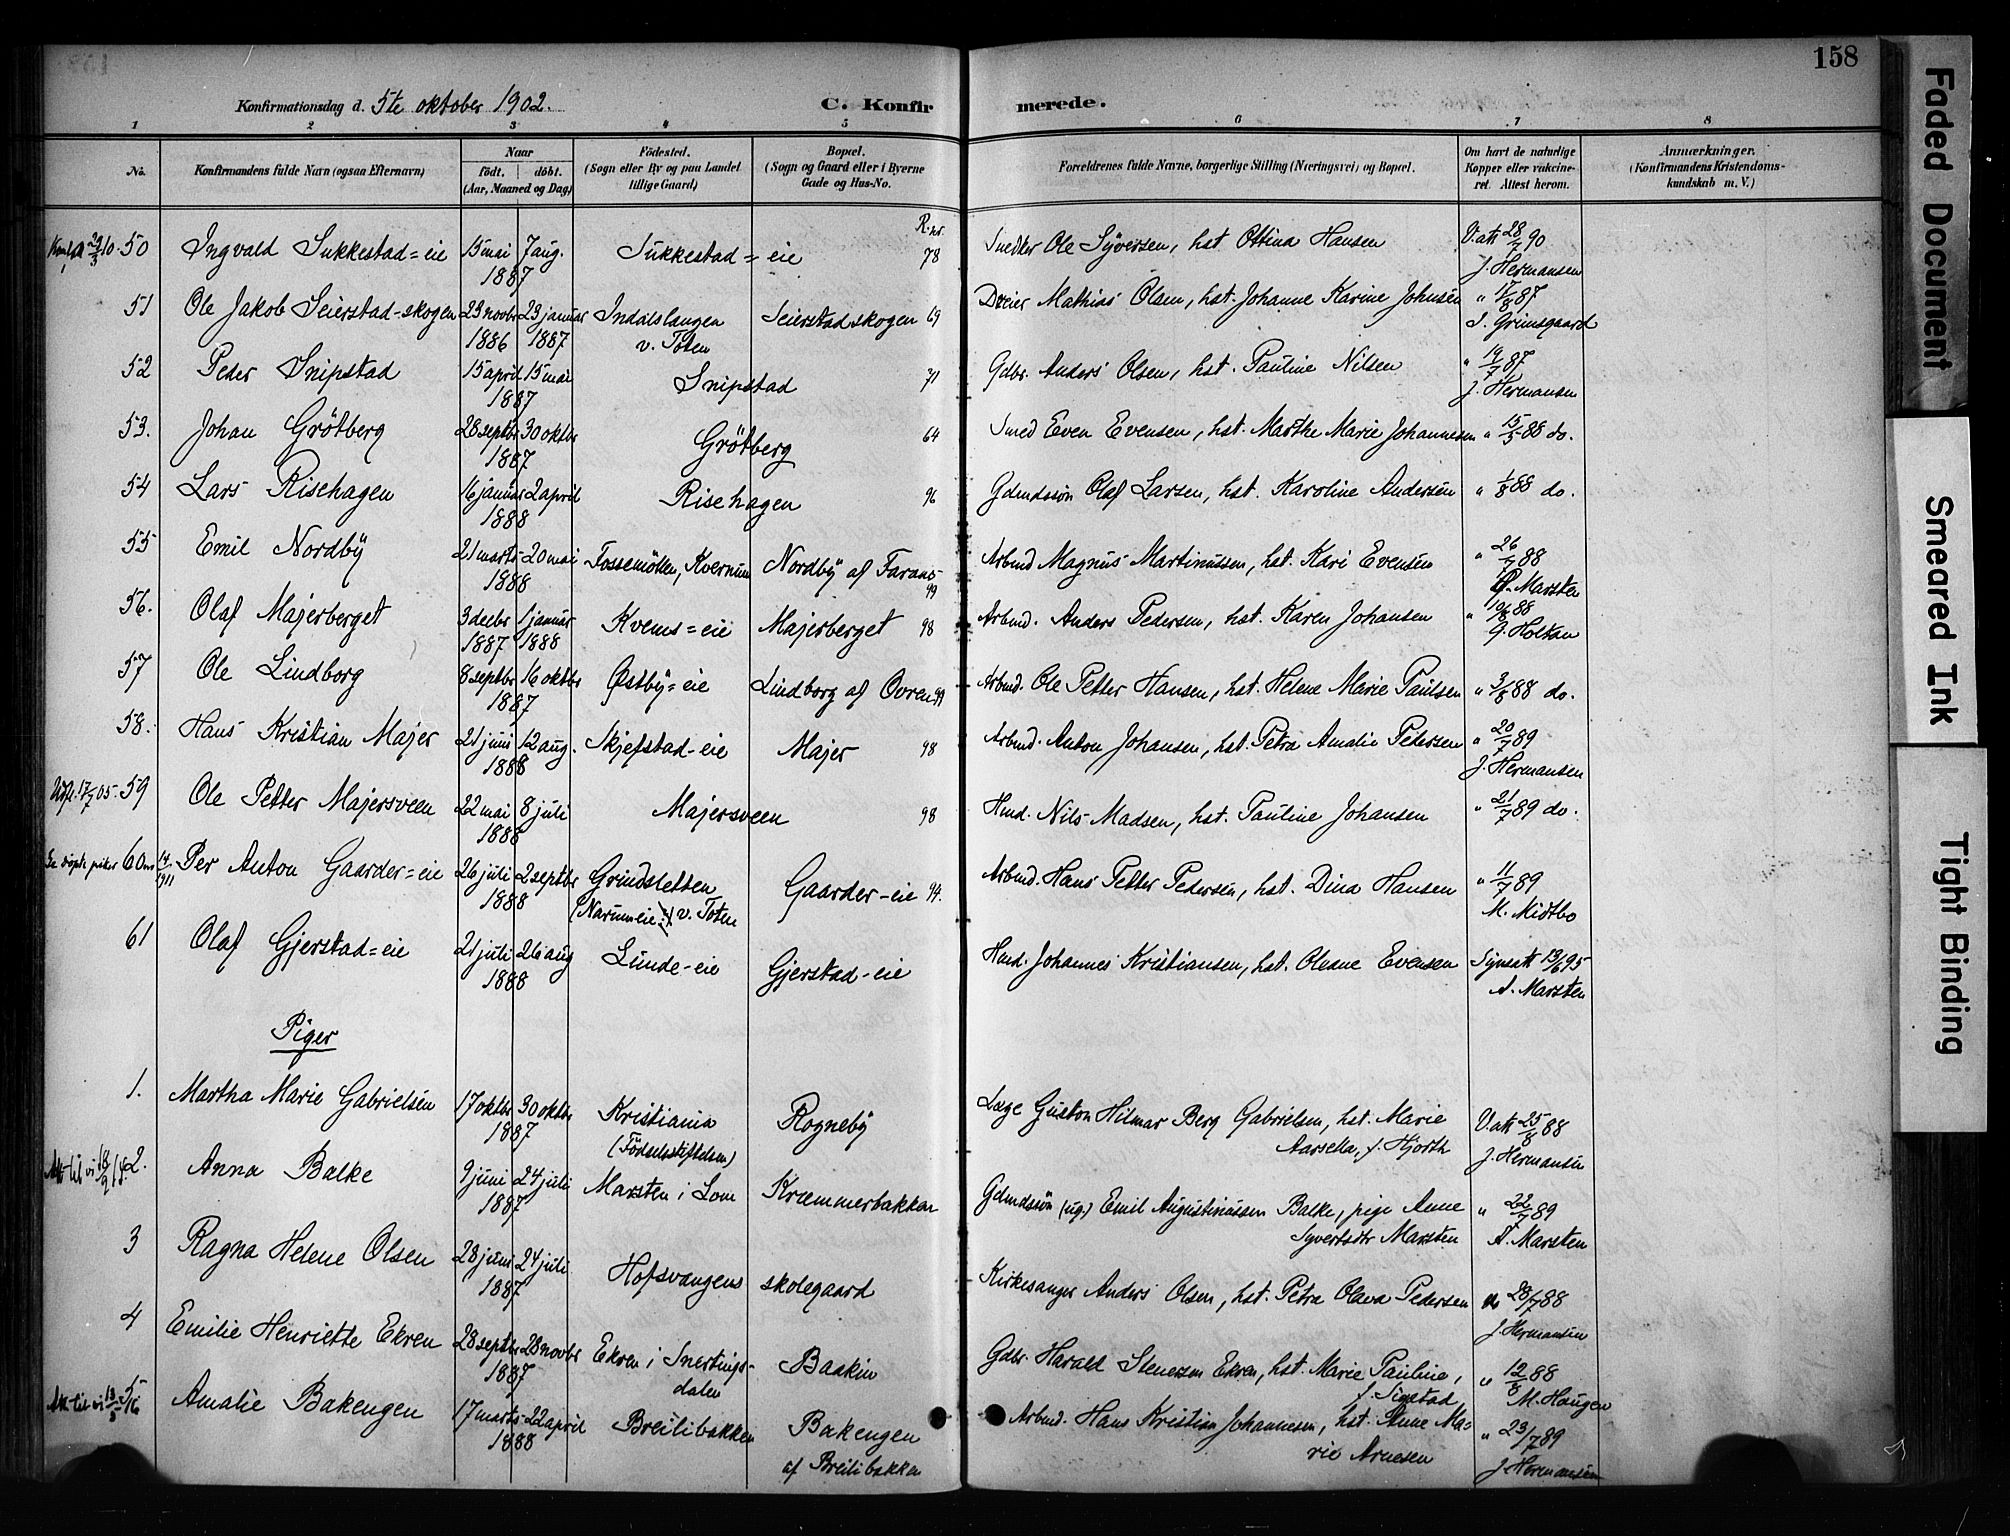 158
Konfirmationsdag d. 5te oktober 1902.
C. Konfirmerede.
1 2 3 4 5 6 7 8
No.
Konfirmandens fulde Navn (ogsaa Efternavn)
Naar
født. døbt.
(Aar, Maaned og Dag)
Fødested.
(Sogn eller By og paa Landet
tillige Gaard)
Bopæl.
(Sogn og Gaard eller i Byerne
Gade og Hus-No.
Forældrenes fulde Navne, borgerlige Stilling (Næringsvei) og Bopæl.
Om havt de naturlige
Kopper eller vakcine-
ret. Attest herom.
Anmærkninger.
(Konfirmandens Kristendoms-
kundskab m. V.)
R. nr.
50 Ingvald Sukkestad=eie 15 mai 7 aug. 1887 Sukkestad=eie 78 Snedker Ole Syversen, hst. Ottina Hansen V. att 28/7 90
J. Hermansen
51 Ole Jakob Seierstad-skogen 23 novbr 1886 23 januar 1887 Indalslangen
v. Toten Seierstadskogen 69 Dreier Mathias Olsen, hst. Johanne Karine Johnsen " 17/8 87
S. Grimsgaard
52 Peder Snipstad 15 april 15 mai 1887 Snipstad 71 Gdbr. Anders Olsen, hst. Pauline Nilsen " 19/7 87
J. Hermansen
53. Johan Grötberg 28 septbr 30 oktbr 1887 Grötberg 64 Smed Even Evensen, hst. Marthe Marie Johannesen " 15/5 88 do.
54 Lars Risehagen 16 januar 2 april 1888 Risehagen 96 Gdmdssön Olaf Larsen, hst. Karoline Andersen " 1/8 88 do.
55 Emil Nordby 21 marts 20 mai 1888 Fossemöllen, Kvernum Nordby af Farans 99 Arbmd Magnus Martinussen, hst. Kari Evensen " 26/7 88
P. Marsten
56. Olaf Majerberget 3 decbr 1887 1 januar 1888 Kvems=eie Majerberget 98 Arbmd. Anders Pedersen, hst. Karen Johansen " 10/8 88
G. Holkan
57 Ole Lindborg 8 septbr 16 oktbr 1887 Østby=eie Lindborg af Ovren 99 Arbmd. Ole Petter Hansen, hst. Helene Marie Paulsen " 3/8 88 do.
58. Hans Kristian Majer 21 juni 12 aug. 1888 Skjefstad-eie Majer 98 Arbmd. Anton Johansen, hst. Petra Amalie Pedersen " 20/7 89
J. Hermansen
Udfl. 17/7 05. 59 Ole Petter Majersveen 22 mai 8 juli 1888 Majersveen 98 Hmd. Nils Madsen, hst. Pauline Johansen " 21/7 89 do.
60 Per Anton Gaarder=eie 26 juli 2 septbr 1888 Grindstetten
(Narumeie) v. Toten Gaarder-eie 94. Arbmd. Hans Petter Pedersen, hst. Dina Hansen " 11/7 89
M. Midtbo
61 Olaf Gjerstad=eie 21 juli 26 aug 1888 Lunde-eie Gjerstad-eie Hmd. Johannes Kristiansen, hst. Oleane Evensen Synsatt 13/6 95
A. Marsten
Piger
1. Martha Marie Gabrielsen 17 oktbr 30 oktbr 1887 Kristiania
(Födselsstiftelsen) Rogneby Læge Guston Hilmar Berg Gabrielsen, hst. Marie
Aarsella, f. Hjorth V. att 25/8 88
J. Hermansen
2. Anna Balke 9 juni 24 juli 1887 Marsten i Lom Kræmmerbakken Gdmdssön (ug.) Emil Augustinussen Balke, pige Anne
Syvertsdtr Marsten " 22/7 89
A. Marsten
3 Ragna Helene Olsen 28 juni 24 juli 1887 Hofsvangens skolegaard Kirkesanger Anders Olsen, hst. Petra Olava Pedersen " 28/7 88
J. Hermansen
4 Emilie Henriette Ekren 28 septbr 28 novbr 1887 Ekren i Snertings-
dalen Baakin Gdbr. Harald Stenersen Ekren, hst. Marie Pauline,
f. Sigstad " 12/8 88
M. Haugen
5 Amalie Bakengen 17 marts 22 april 1888 Breilibakken Bakengen
af Breilibakken Arbmd. Hans Kristian Johannesen, hst. Anne Ma-
rie Arnesen " 23/7 89
J. Hermansen
Faded Document
Smeared Ink
Tight Binding